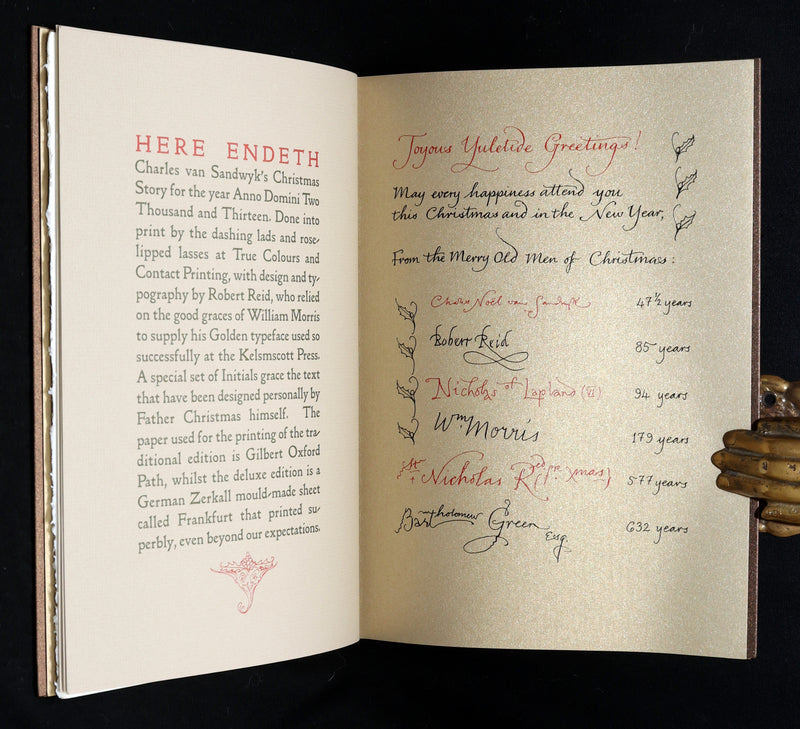 HERE ENDETH
Charles van Sandwyk's Christmas
Story for the year Anno Domini Two
Thousand and Thirteen. Done into
print by the dashing lads and rose-
lipped lasses at True Colours and
Contact Printing, with design and ty-
pography by Robert Reid, who relied
on the good graces of William Morris
to supply his Golden typeface used so
successfully at the Kelsmscott Press.
A special set of Initials grace the text
that have been designed personally by
Father Christmas himself. The
paper used for the printing of the tra-
ditional edition is Gilbert Oxford
Path, whilst the deluxe edition is a
German Zerkall mould-made sheet
called Frankfurt that printed su-
perbly, even beyond our expectations.
Joyous Yuletide Greetings!
May every happiness attend you
this Christmas and in the New Year,
From the Merry Old Men of Christmas:
Charles Noël van Sandwyk 47½ years
Robert Reid 85 years
Nicholas of Lapland (VI) 94 years
Wm Morris 179 years
St. Nicholas 577 years
Bartholomew Green Esq. 632 years